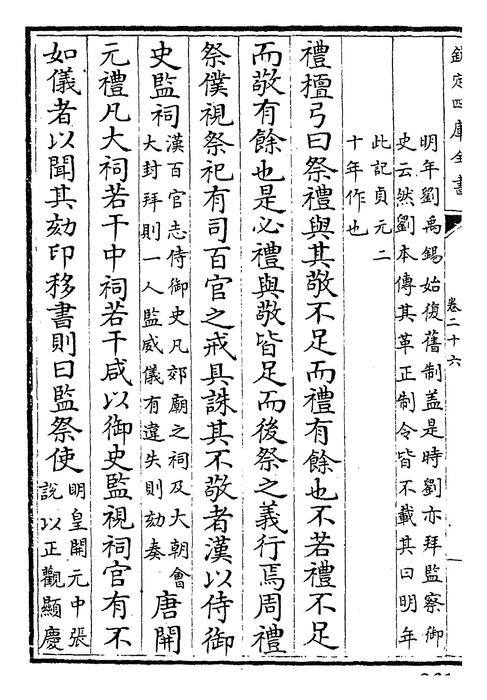 欽定四庫全書
卷二十六
明年劉禹錫始復舊制盖是時劉亦拜監察御
史云然劉本傳其革正制令皆不載其曰明年
此記貞元二
十年作也
禮檀弓曰祭禮與其敬不足而禮有餘也不若禮不足
而敬有餘也是必禮與敬皆足而後祭之義行焉周禮
祭僕視祭祀有司百官之戒具誅其不敬者漢以侍御
史監祠漢百官志侍御史凡郊廟之祠及大朝會
大封拜則一人監威儀有違失則劾奏唐開
元禮凡大祠若干中祠若干咸以御史監視祠官有不
如儀者以聞其劾印移書則曰監祭使明皇開元中張
說以正觀顯慶